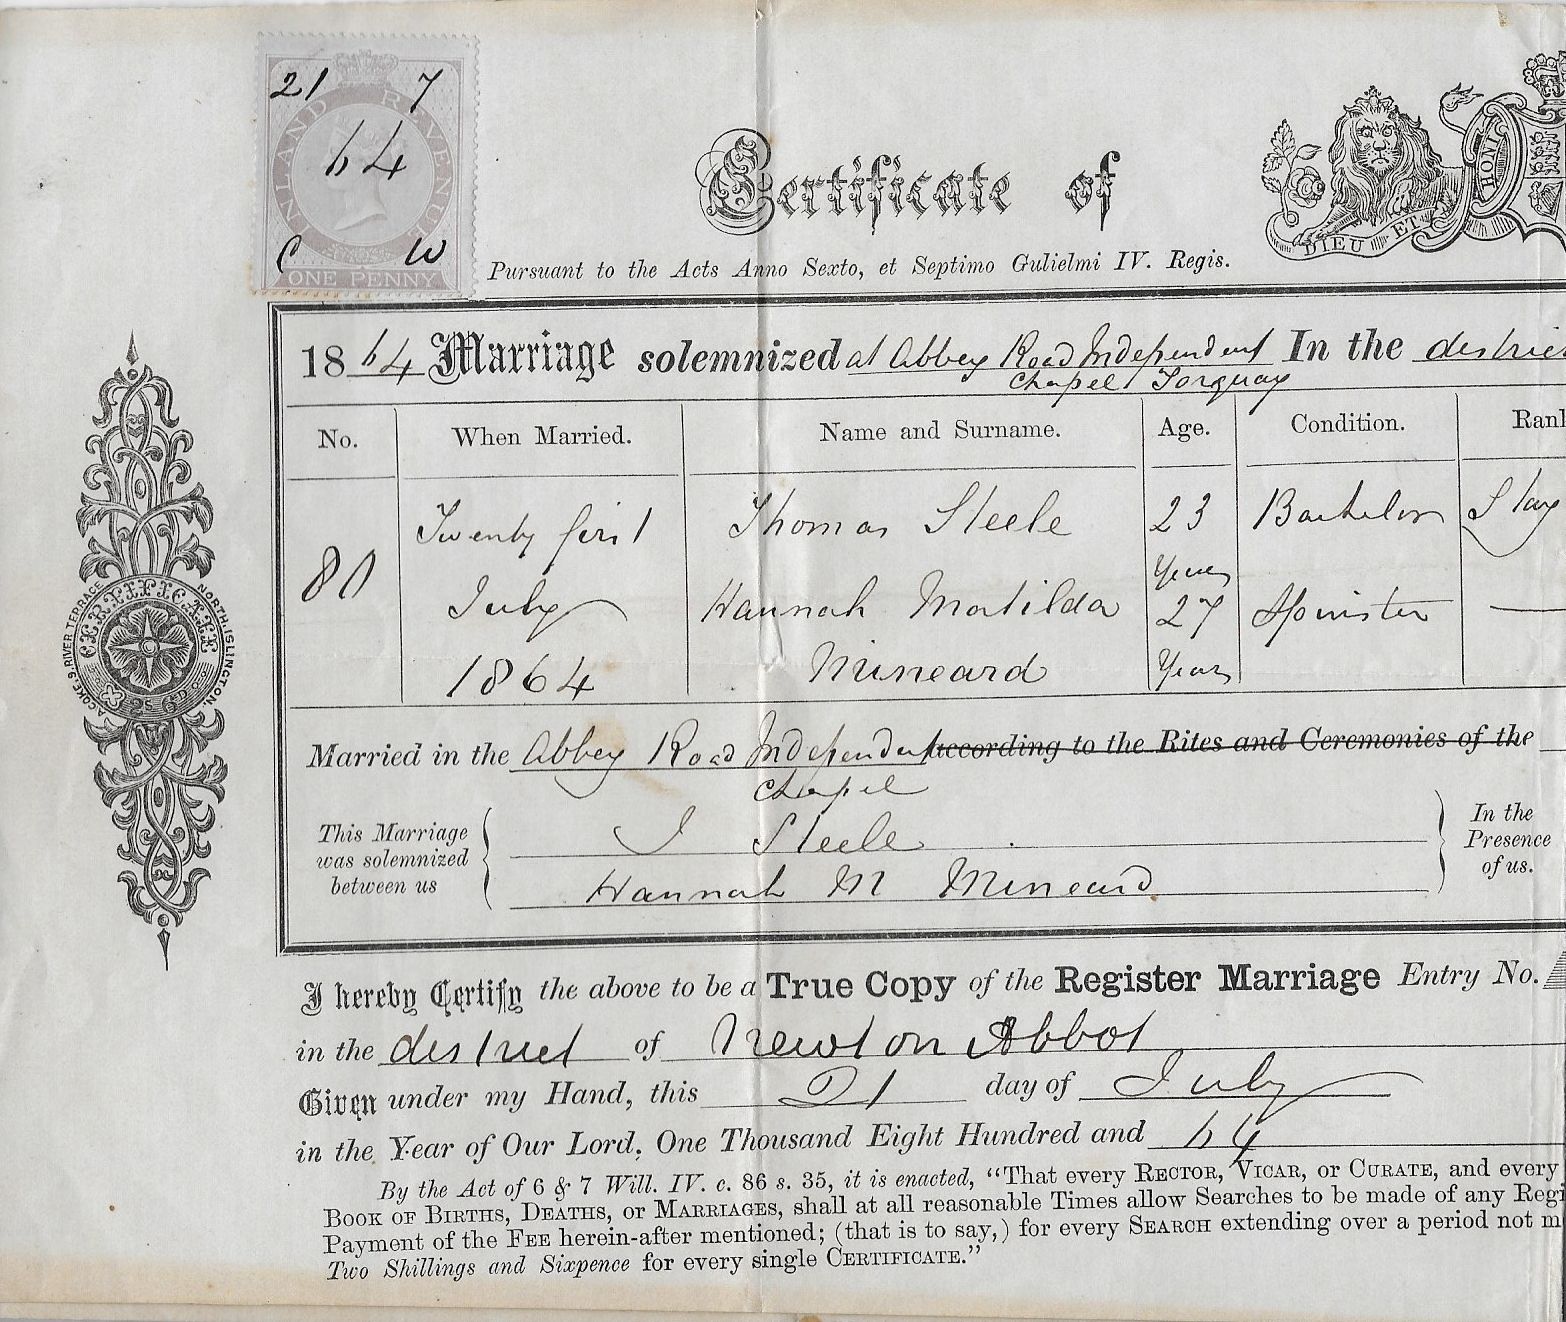 21 7
64
C W
INLAND REVENUE
ONE PENNY
Certificate of
DIEU ET
HONI
Pursuant to the Acts Anno Sexto, et Septimo Gulielmi IV. Regis.
1864 Marriage solemnized at Abbey Road Independent In the
Chapel Torquay
No. When Married. Name and Surname. Age. Condition.
80 Twenty first Thomas Steele 23 Bachelor
Years
July Hannah Matilda 27 Spinster —
1864 Mineard Years
Married in the Abbey Road Independent according to the Rites and Ceremonies of the
Chapel
This Marriage was solemnized between us
T Steele
Hannah M Mineard
In the Presence of us.
CERTIFICATE
A COKE, 9, RIVER TERRACE NORTH, ISLINGTON.
I hereby Certify the above to be a True Copy of the Register Marriage Entry No.
in the district of Newton Abbot
Given under my Hand, this 21 day of July
in the Year of Our Lord, One Thousand Eight Hundred and 64
By the Act of 6 & 7 Will. IV. c. 86 s. 35, it is enacted, "That every RECTOR, VICAR, or CURATE, and every
BOOK OF BIRTHS, DEATHS, or MARRIAGES, shall at all reasonable Times allow Searches to be made of any Regi
Payment of the FEE herein-after mentioned; (that is to say,) for every SEARCH extending over a period not m
Two Shillings and Sixpence for every single CERTIFICATE."